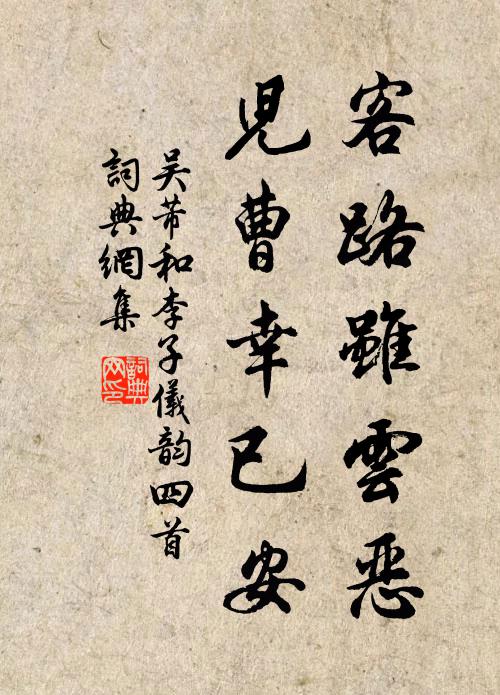 客路雖雲惡
兒曹幸已安
吴芾和李子儀韵四首
詞典網集
詞典網印